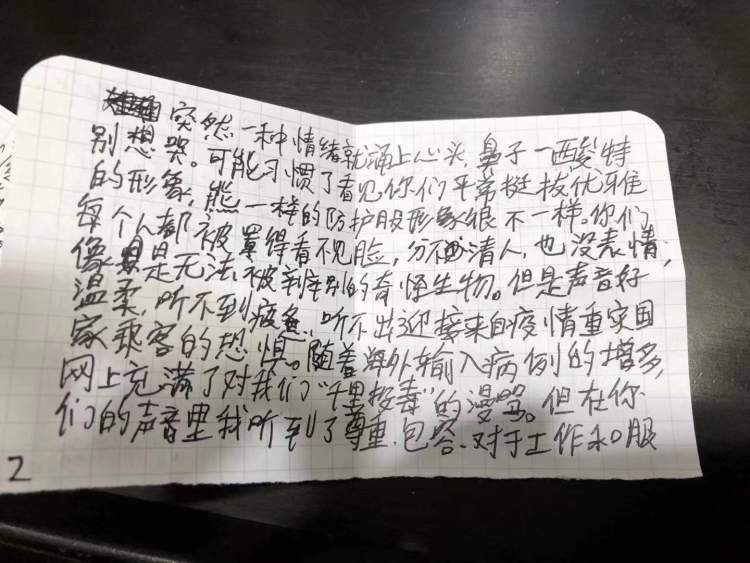 突然一种情绪就涌上心头,鼻子一酸特
别想哭。可能习惯了看见你们平常挺拔优雅
的形象,熊一样的防护服形象很不一样。你们
每个人都被罩得看不见脸,分不清人,也没表情,
像是无法被判别的奇怪生物。但是声音好
温柔,听不到疲惫,听不出迎接来自疫情重灾国
家乘客的惧。随着海外输入病例的增多,
网上充满了对我们“千里投毒”的漫骂。但在你
们的声音里我听到了尊重、包容、对于工作和服
2